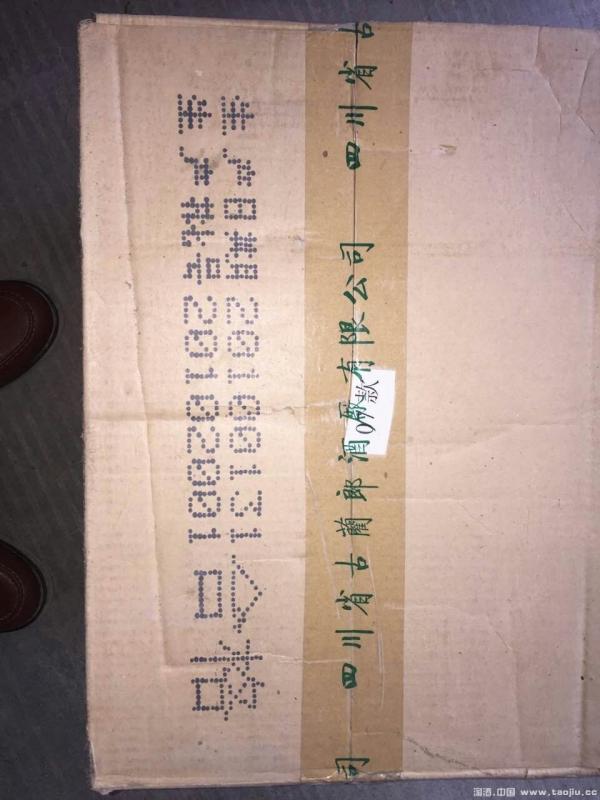 四川省古蔺郎酒有限公司
四川省古
司
生产日期 20100131
生产批号 20102001
合格
淘酒.中国 - www.taojiu.cc